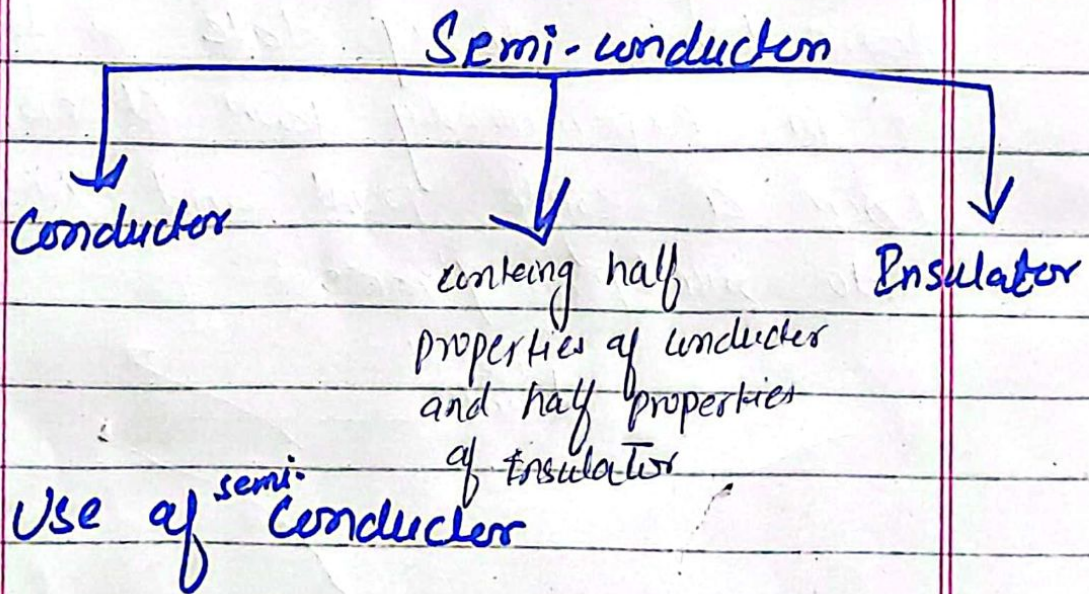 Semi-conductor
Conductor
conteing half
properties of conducter
and half properties
of Insulator
Insulator
Use of semi-Conductor